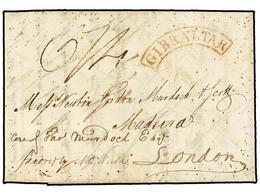 GIBRALTAR
Mess Newton Gordon Murdoch & Scott
Madeira
Care of Thos Murdoch Esqr
London